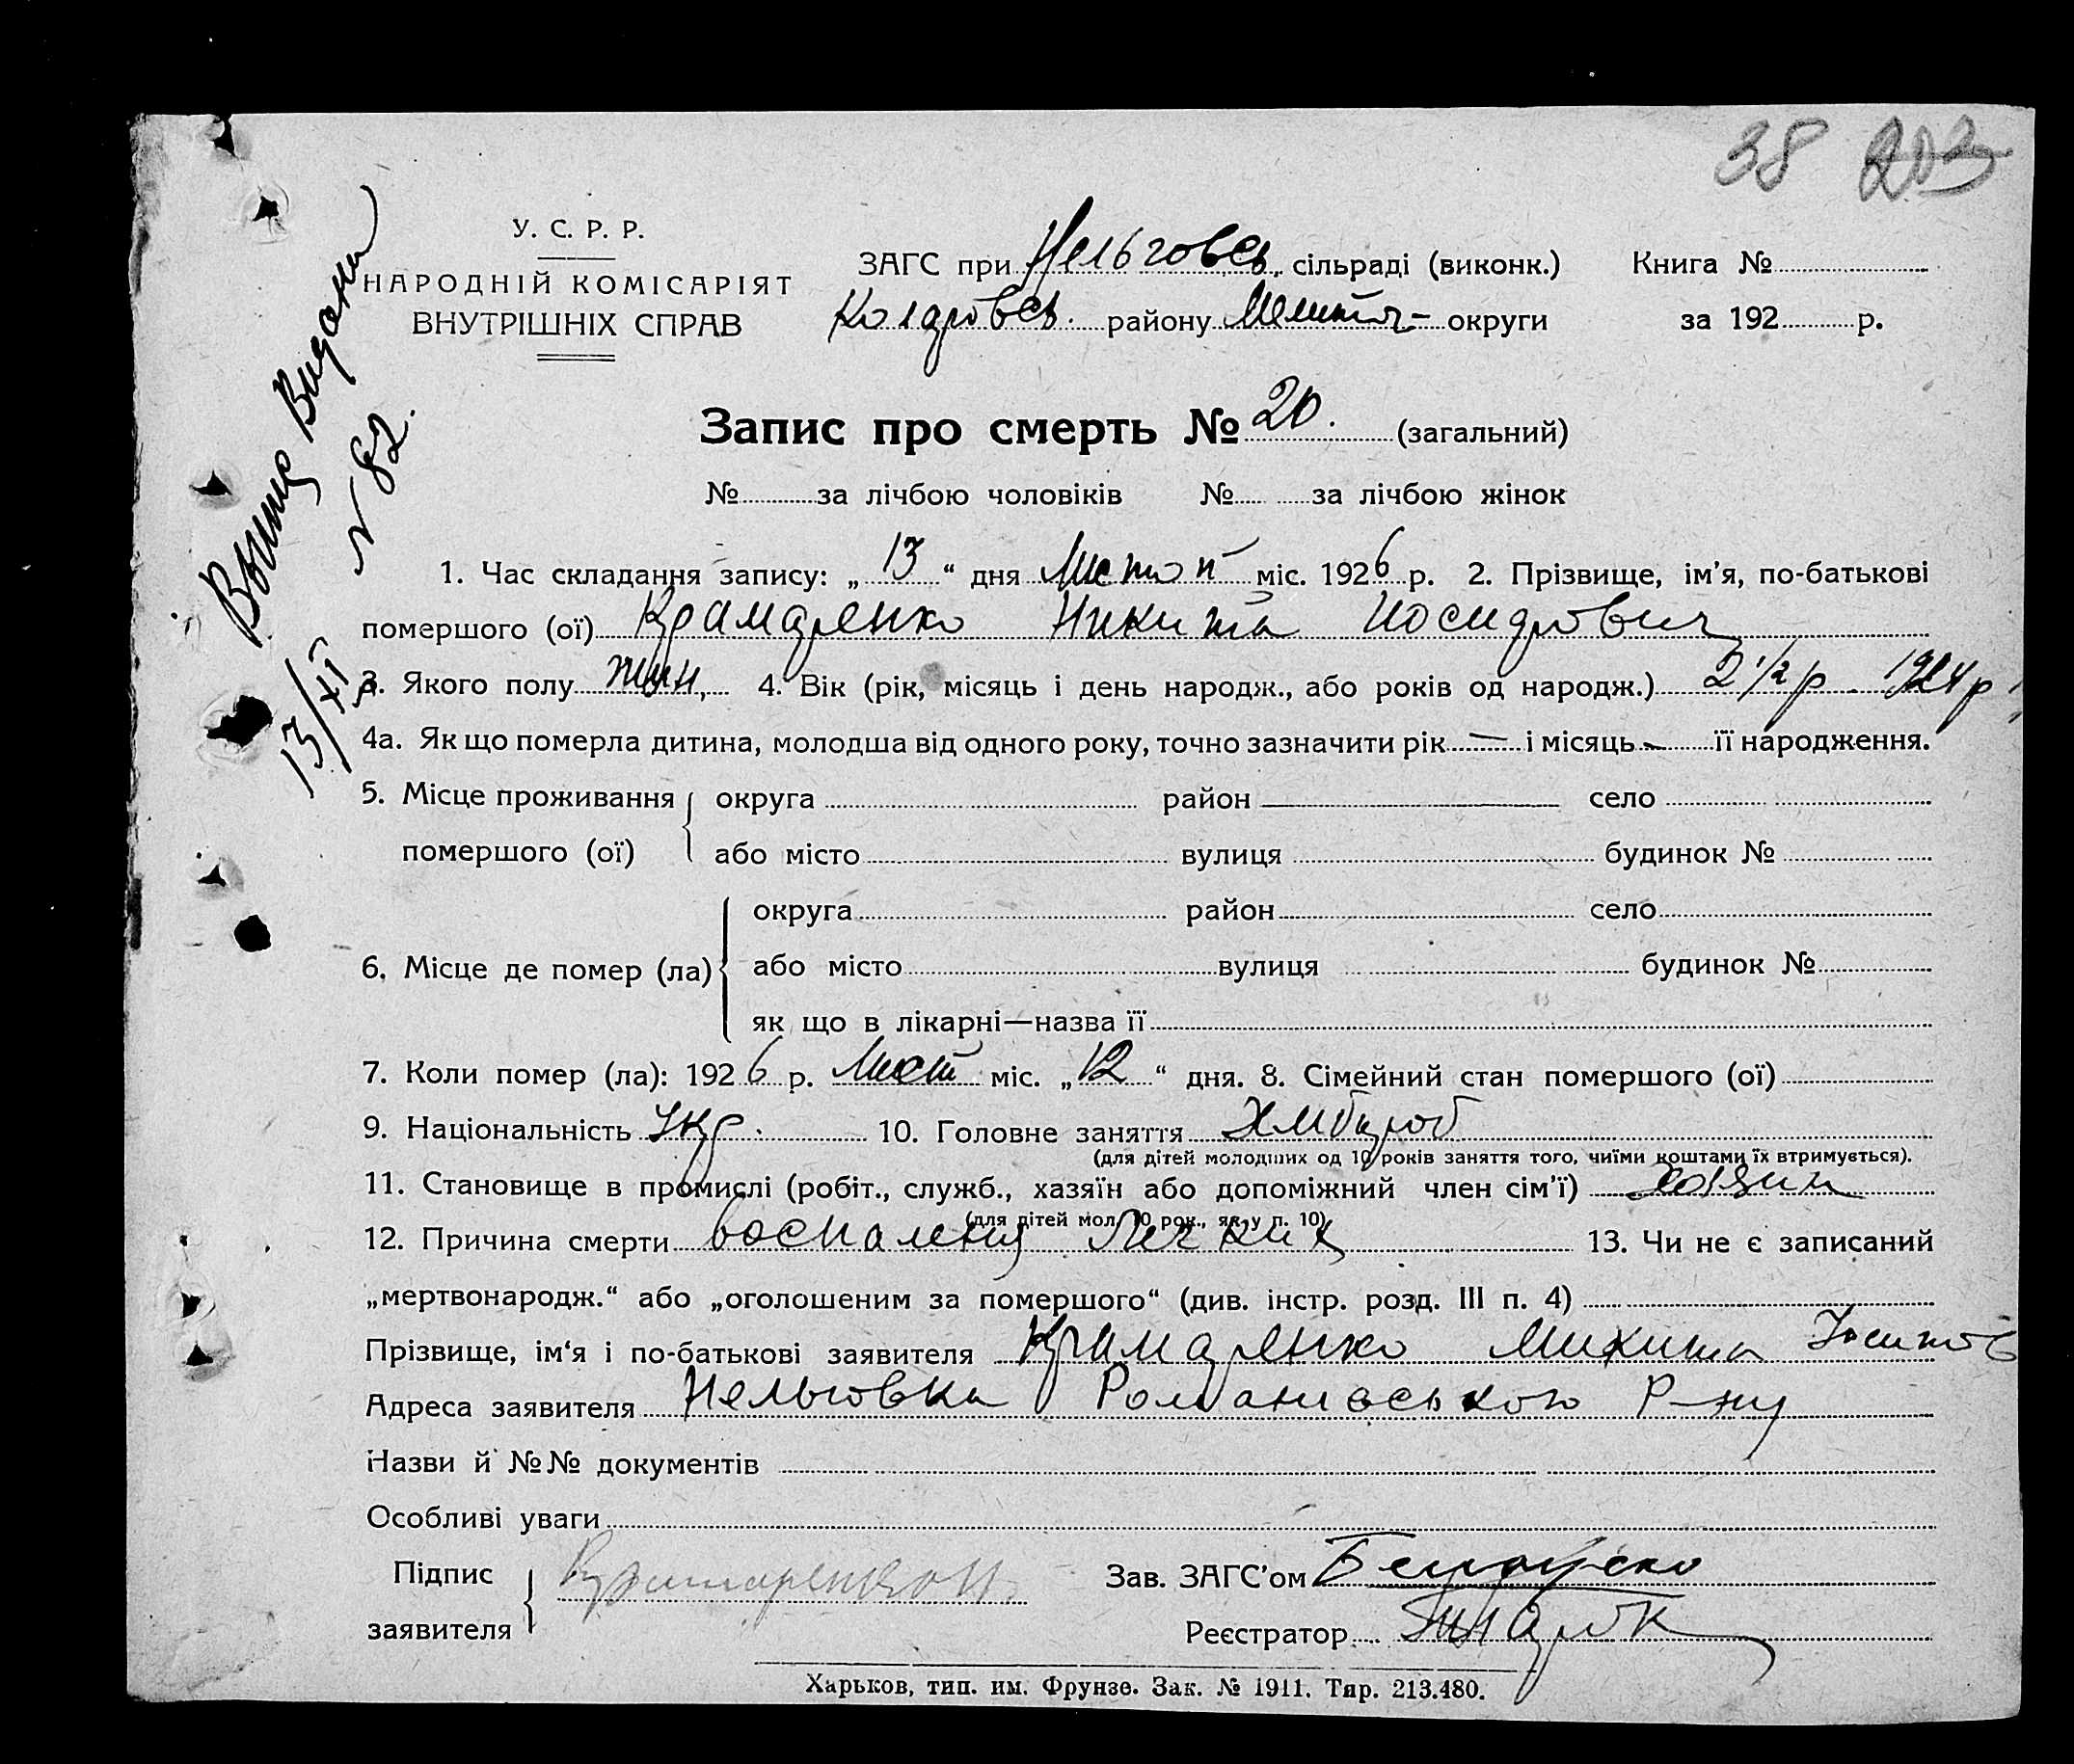 38 203
У. С. Р. Р.
НАРОДНІЙ КОМІСАРІЯТ
ВНУТРІШНІХ СПРАВ
ЗАГС при Нельговсь. сільраді (виконк.)
районуокруги
Книга №
за 192 р.
Видано
№ 82.
13/XI
Запис про смерть № 20. (загальний)
№ за лічбою чоловіків № за лічбою жінок
1. Час складання запису: „ 13 “ дня Листоп міс. 1926 р. 2. Прізвище, ім’я, по-батькові
помершого (ої) Крамаренко Никита Иосипович
3. Якого полу 4. Вік (рік, місяць і день народж., або років од народж.) 2 1/2 р. 1924 р
4а. Як що померла дитина, молодша від одного року, точно зазначити рік — і місяць — її народження.
5. Місце проживання округа район село
помершого (ої) або місто вулиця будинок №
округа район село
6. Місце де помер (ла) або місто вулиця будинок №
як що в лікарні—назва її
7. Коли помер (ла): 1926 р. Лист міс. „ 12 “ дня. 8. Сімейний стан помершого (ої)
9. Національність Укр. 10. Головне заняття Хлібороб
(для дітей молодших од 10 років заняття того, чиїми коштами їх втримується).
11. Становище в промислі (робіт., служб., хазяїн або допоміжний член сім’ї) хозяин
(для дітей мол. 10 рок., як у п. 10)
12. Причина смерти воспаления 13. Чи не є записаний
„мертвонародж.“ або „оголошеним за помершого“ (див. інстр. розд. III п. 4)
Прізвище, ім‘я і по-батькові заявителя Крамаренко Микита
Адреса заявителя Нельговка Романівського Р-ну
Назви й №№ документів
Особливі уваги
Підпис
заявителя
Зав. ЗАГС’ом
Реєстратор
Харьков, тип. им. Фрунзе. Зак. № 1911. Тир. 213.480.